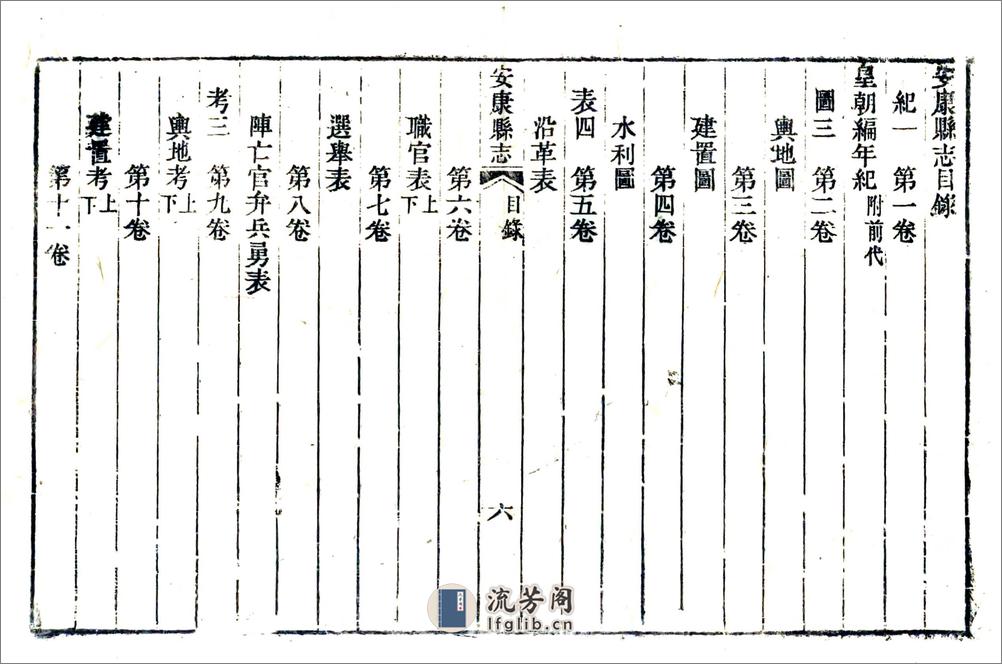 安康縣志目錄
紀一 第一卷
皇朝編年紀附前代
圖三 第二卷
輿地圖
第三卷
建置圖
第四卷
水利圖
表四 第五卷
沿革表
安康縣志 目錄 六
第六卷
職官表上下
第七卷
選舉表
第八卷
陣亡官弁兵勇表
考三 第九卷
輿地考上下
第十卷
建置考上下
第十一卷
流芳阁
lfglib.cn